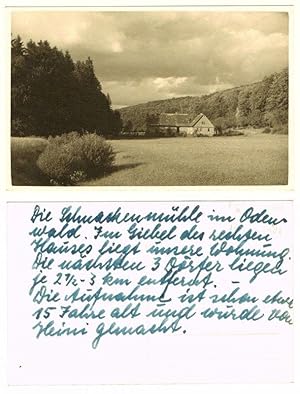 Die Schnackenmühle im Oden-
wald. Im Giebel des rechten
Hauses liegt unsere Wohnung.
Die nächsten 3 Dörfer liegen
je 2½-3 km entfernt. -
Die Aufnahme ist schon etwa
15 Jahre alt und wurde von
Heini gemacht.